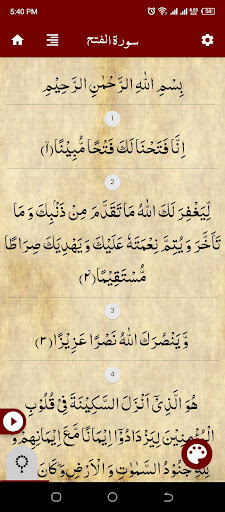 5:40 PM
سورة الفتح
بِسْمِ اللهِ الرَّحْمٰنِ الرَّحِيْمِ
1
اِنَّا فَتَحْنَا لَكَ فَتْحًا مُّبِيْنًا ﴿۱﴾
2
لِّيَغْفِرَ لَكَ اللهُ مَا تَقَدَّمَ مِنْ ذَنْۢبِكَ وَ مَا
تَاَخَّرَ وَ يُتِمَّ نِعْمَتَهٗ عَلَيْكَ وَ يَهْدِيَكَ صِرَاطًا
مُّسْتَقِيْمًا ﴿۲﴾
3
وَّ يَنْصُرَكَ اللهُ نَصْرًا عَزِيْزًا ﴿۳﴾
4
هُوَ الَّذِيْۤ اَنْزَلَ السَّكِيْنَةَ فِيْ قُلُوْبِ
الْمُؤْمِنِيْنَ لِيَزْدَادُوْۤا اِيْمَانًا مَّعَ اِيْمَانِهِمْ وَ
لِلّٰهِ جُنُوْدُ السَّمٰوٰتِ وَ الْاَرْضِ وَ كَانَ